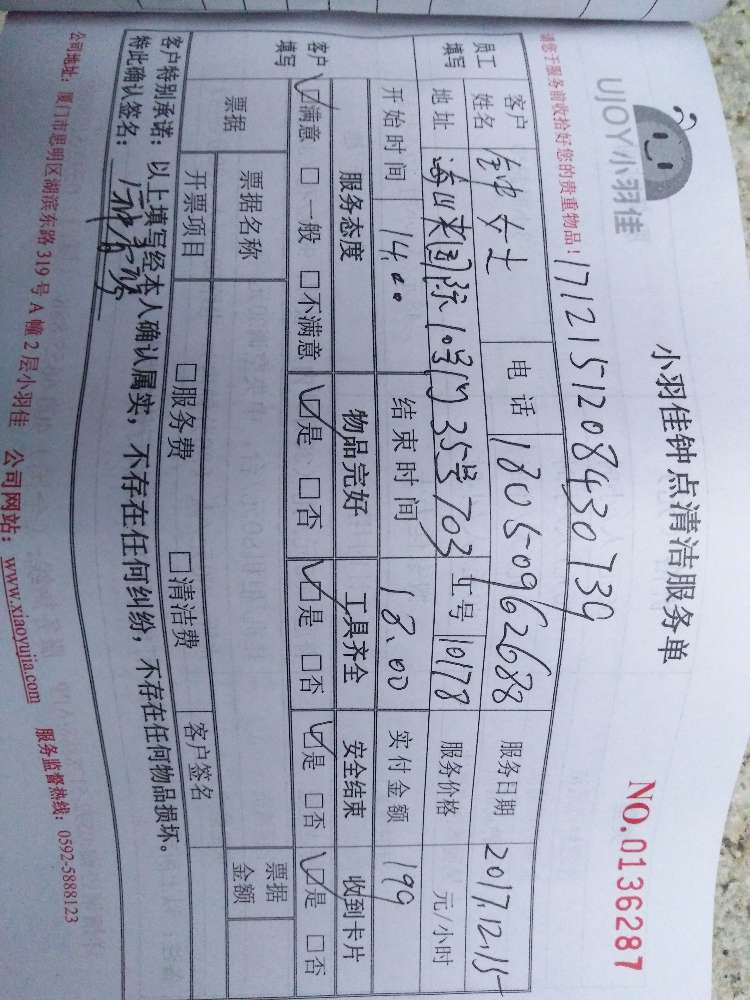 UJOY小羽佳
小羽佳钟点清洁服务单
NO.0136287
请您于服务前收拾好您的贵重物品！
171215120843073 9
员工填写 客户姓名 钟女士 电话 18050962688 服务日期 2017.12.15
地址 国际10号门35号703 工号 10178 服务价格 元/小时
开始时间 14.00 结束时间 18.00 实付金额 199
客户填写 服务态度 物品完好 工具齐全 安全结束 收到卡片
☑满意 □一般 □不满意 ☑是 □否 ☑是 □否 ☑是 □否 ☑是 □否
票据 票据名称 票据金额
开票项目 □服务费 □清洁费 客户签名
客户特别承诺：以上填写经本人确认属实，不存在任何纠纷，不存在任何物品损坏。
特此确认签名：
公司地址：厦门市思明区湖滨东路319号A幢2层小羽佳 公司网站：www.xiaoyujia.com 服务监督热线：0592-5888123